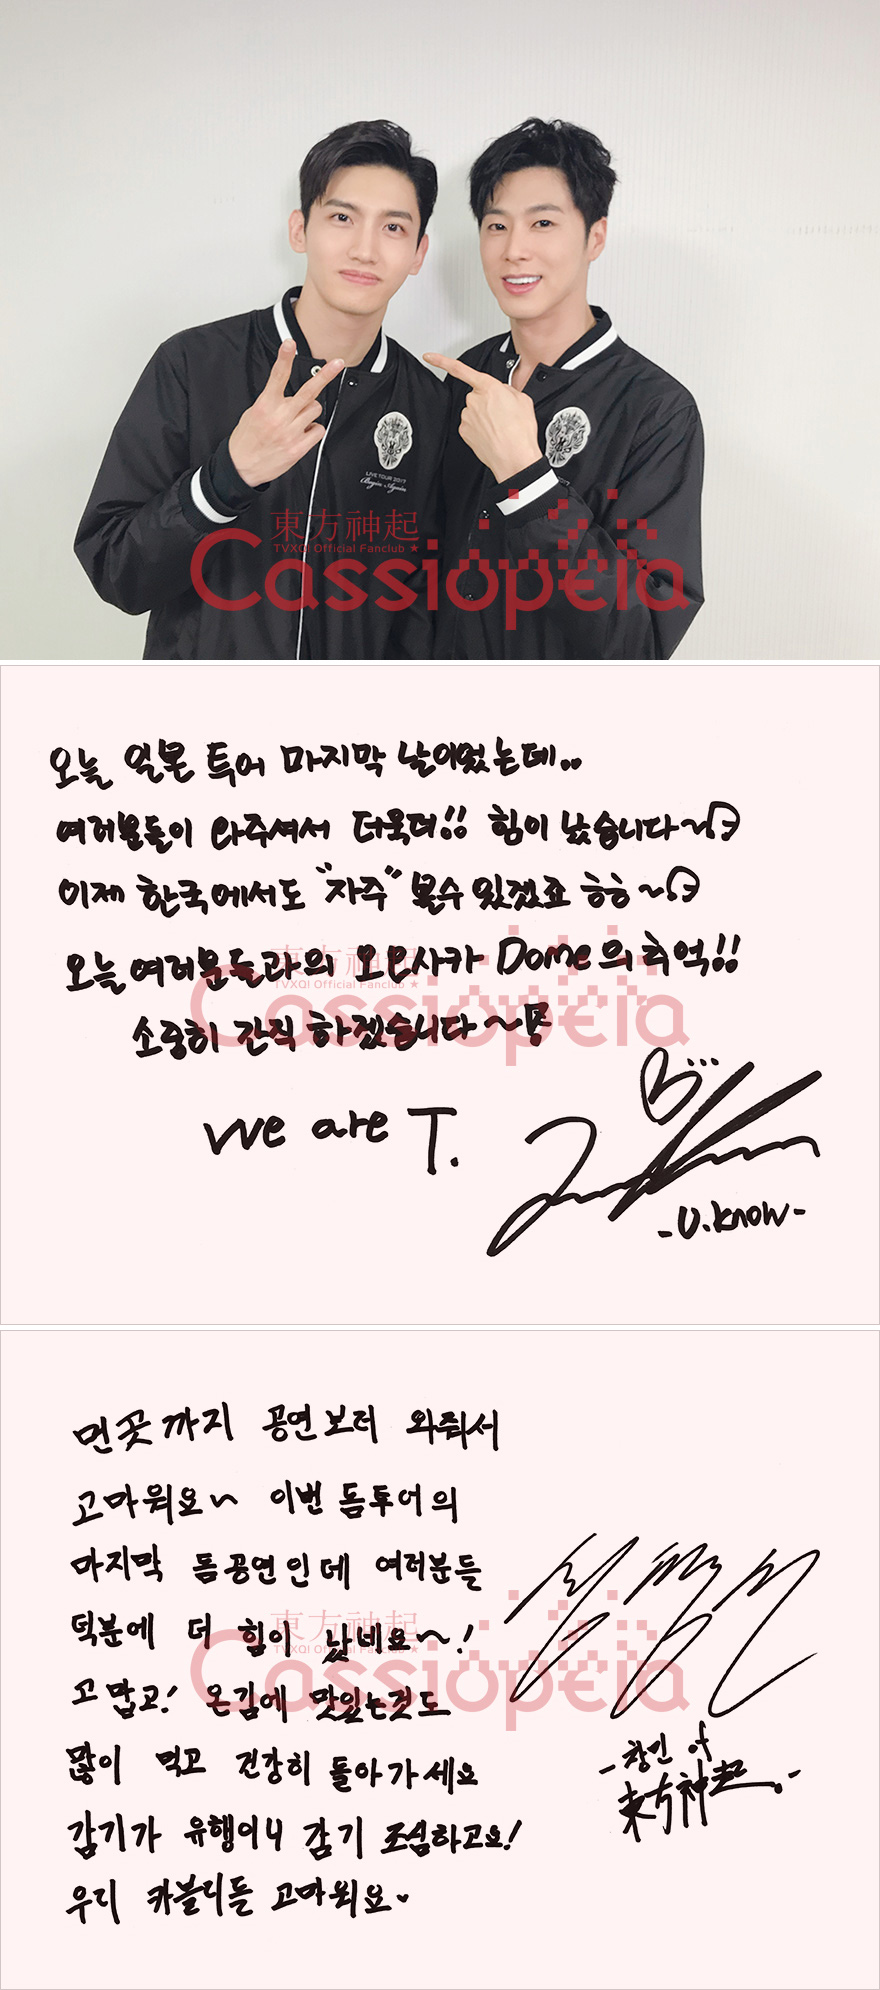 LIVE TOUR 2017
Begin Again
2017
東方神起
TVXQ! Official Fanclub ★
Cassiopeia
오늘 일본 투어 마지막 날이었는데..
여러분들이 와주셔서 더욱더!! 힘이 났습니다~
이제 한국에서도 "자주" 볼수 있겠죠 ㅎㅎ~
오늘 여러분들과의 오오사카 Dome의 추억!!
소중히 간직 하겠습니다~
東方神起
TVXQ! Official Fanclub ★
Cassiopeia
We are T.
-U.know-
먼곳까지 공연보러 와줘서
고마워요~ 이번 돔투어의
마지막 돔공연인데 여러분들
덕분에 더 힘이 났네요~!
고맙고! 온김에 맛있는것도
많이 먹고 건강히 돌아가세요
감기가 유행이니 감기 조심하고요!
우리 카블리들 고마워요
東方神起
TVXQ! Official Fanclub ★
Cassiopeia
-창민 of
東方神起.-